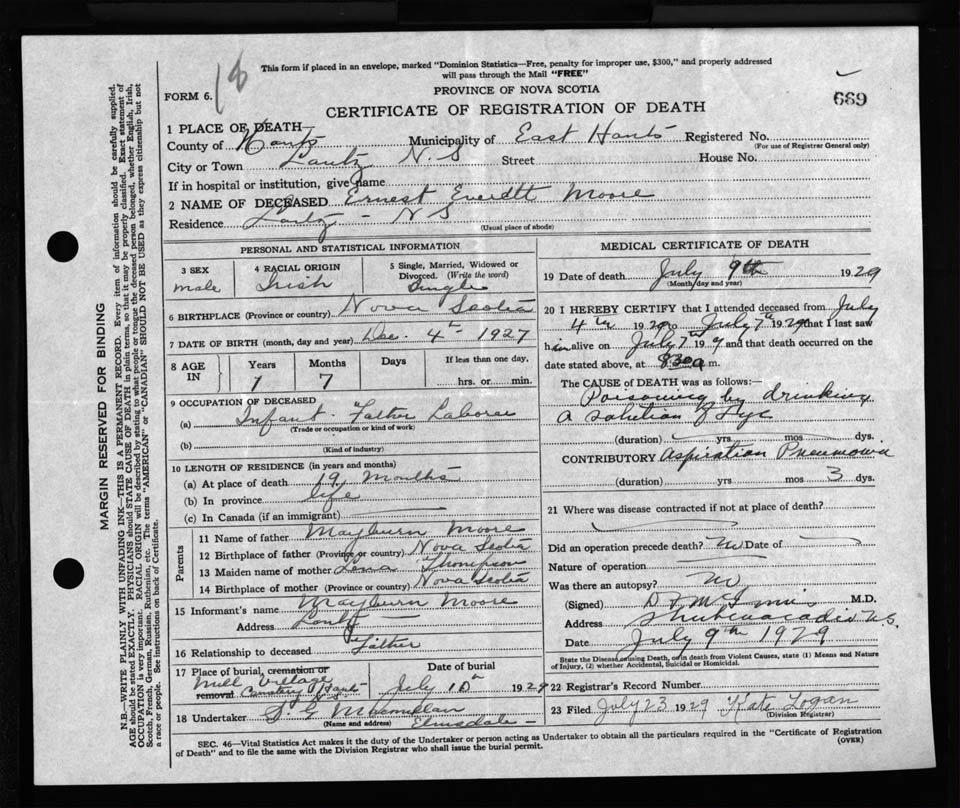 18
This form if placed in an envelope, marked "Dominion Statistics—Free, penalty for improper use, $300," and properly addressed
will pass through the Mail "FREE"
FORM 6.
PROVINCE OF NOVA SCOTIA
669
CERTIFICATE OF REGISTRATION OF DEATH
1 PLACE OF DEATH—
County of Hants Municipality of East Hants Registered No.
(For use of Registrar General only)
City or Town Lantz N.S Street House No.
If in hospital or institution, give name
2 NAME OF DECEASED Ernest Everett Moore
Residence Lantz - N S
(Usual place of abode)
PERSONAL AND STATISTICAL INFORMATION
3 SEX
male
4 RACIAL ORIGIN
Irish
5 Single, Married, Widowed or
Divorced. (Write the word)
Single
6 BIRTHPLACE (Province or country) Nova Scotia
7 DATE OF BIRTH (month, day and year) Dec. 4th 1927
8 AGE
IN
Years Months Days If less than one day,
1 7 hrs. or min.
9 OCCUPATION OF DECEASED
(a) Infant - Father Laborer
(Trade or occupation or kind of work)
(b)
(Kind of industry)
10 LENGTH OF RESIDENCE (in years and months)
(a) At place of death 19 months
(b) In province life
(c) In Canada (if an immigrant)
Parents
11 Name of father Mayburn Moore
12 Birthplace of father (Province or country) Nova Scotia
13 Maiden name of mother Lena Thompson
14 Birthplace of mother (Province or country) Nova Scotia
15 Informant's name Mayburn Moore
Address Lantz
16 Relationship to deceased Father
17 Place of burial, cremation or
removal Mill Village
Cemetery Hants
Date of burial
July 10th 1929
18 Undertaker S G McMullan
(Name and address) Elmsdale
MEDICAL CERTIFICATE OF DEATH
19 Date of death July 9th 1929
(Month, day and year)
20 I HEREBY CERTIFY that I attended deceased from July
4th 1929 to July 7th 1929 that I last saw
him alive on July 7th 19 9 and that death occurred on the
date stated above, at 8.30 a m.
The CAUSE OF DEATH was as follows:
Poisoning by drinking
a solution of Lye
(duration) yrs mos dys.
CONTRIBUTORY Aspiration Pneumonia
(duration) yrs mos 3 dys.
21 Where was disease contracted if not at place of death?
Did an operation precede death? no Date of
Nature of operation
Was there an autopsy? no
(Signed) M.D.
Address Shubenacadie N.S.
Date July 9th 1929
State the Disease causing Death, or in death from Violent Causes, state (1) Means and Nature
of Injury, (2) whether Accidental, Suicidal or Homicidal.
22 Registrar's Record Number
23 Filed July 23 1929 Kate Logan
(Division Registrar)
SEC. 46—Vital Statistics Act makes it the duty of the Undertaker or person acting as Undertaker to obtain all the particulars required in the "Certificate of Registration
of Death" and to file the same with the Division Registrar who shall issue the burial permit.
(OVER)
MARGIN RESERVED FOR BINDING
N.B.—WRITE PLAINLY WITH UNFADING INK—THIS IS A PERMANENT RECORD. Every item of information should be carefully supplied.
AGE should be stated EXACTLY. PHYSICIANS should STATE CAUSE OF DEATH in plain terms, so that it may be properly classified. Exact statement of
OCCUPATION is very important. RACIAL ORIGIN will be described by stating to what people or tongue the deceased person belonged, whether English, Irish,
Scotch, French, German, Russian, Ruthenian, etc. The terms "AMERICAN" or "CANADIAN" SHOULD NOT BE USED as they express citizenship but not
a race or people. See instructions on back of Certificate.